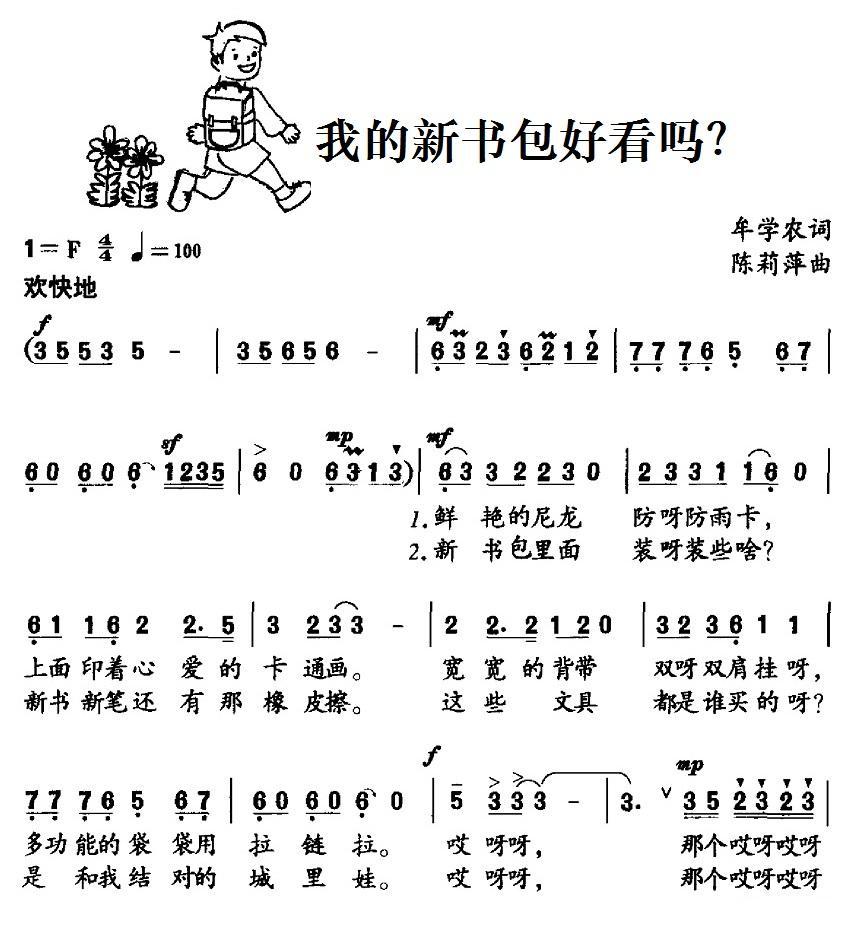 我的新书包好看吗?
牟学农词
1=F 4/4 ♩=100
陈莉萍曲
欢快地
f mf
(3553 5 - | 35656 - | 63236212 | 7776 5 67 |
sf mp mf
60 60 6 1235 | 6 0 6313) | 63 3 2230 | 2331 16 0 |
1.鲜 艳的尼龙 防呀防雨卡,
2.新 书包里面 装呀装些啥?
61 16 2 2.5 | 3 233 - | 2 2.2 120 | 3236 1 1 |
上面 印着心 爱的卡 通画。 宽 宽的背带 双呀双肩挂呀,
新书 新笔还 有那橡 皮擦。 这 些 文具 都是谁买的呀?
f mp
77 76 5 67 | 60 60 6 0 | 5 333 - | 3. ∨ 35 2323 |
多功能的袋 袋用 拉 链 拉。 哎 呀呀, 那个哎呀哎呀
是 和我结 对的 城 里 娃。 哎 呀呀, 那个哎呀哎呀